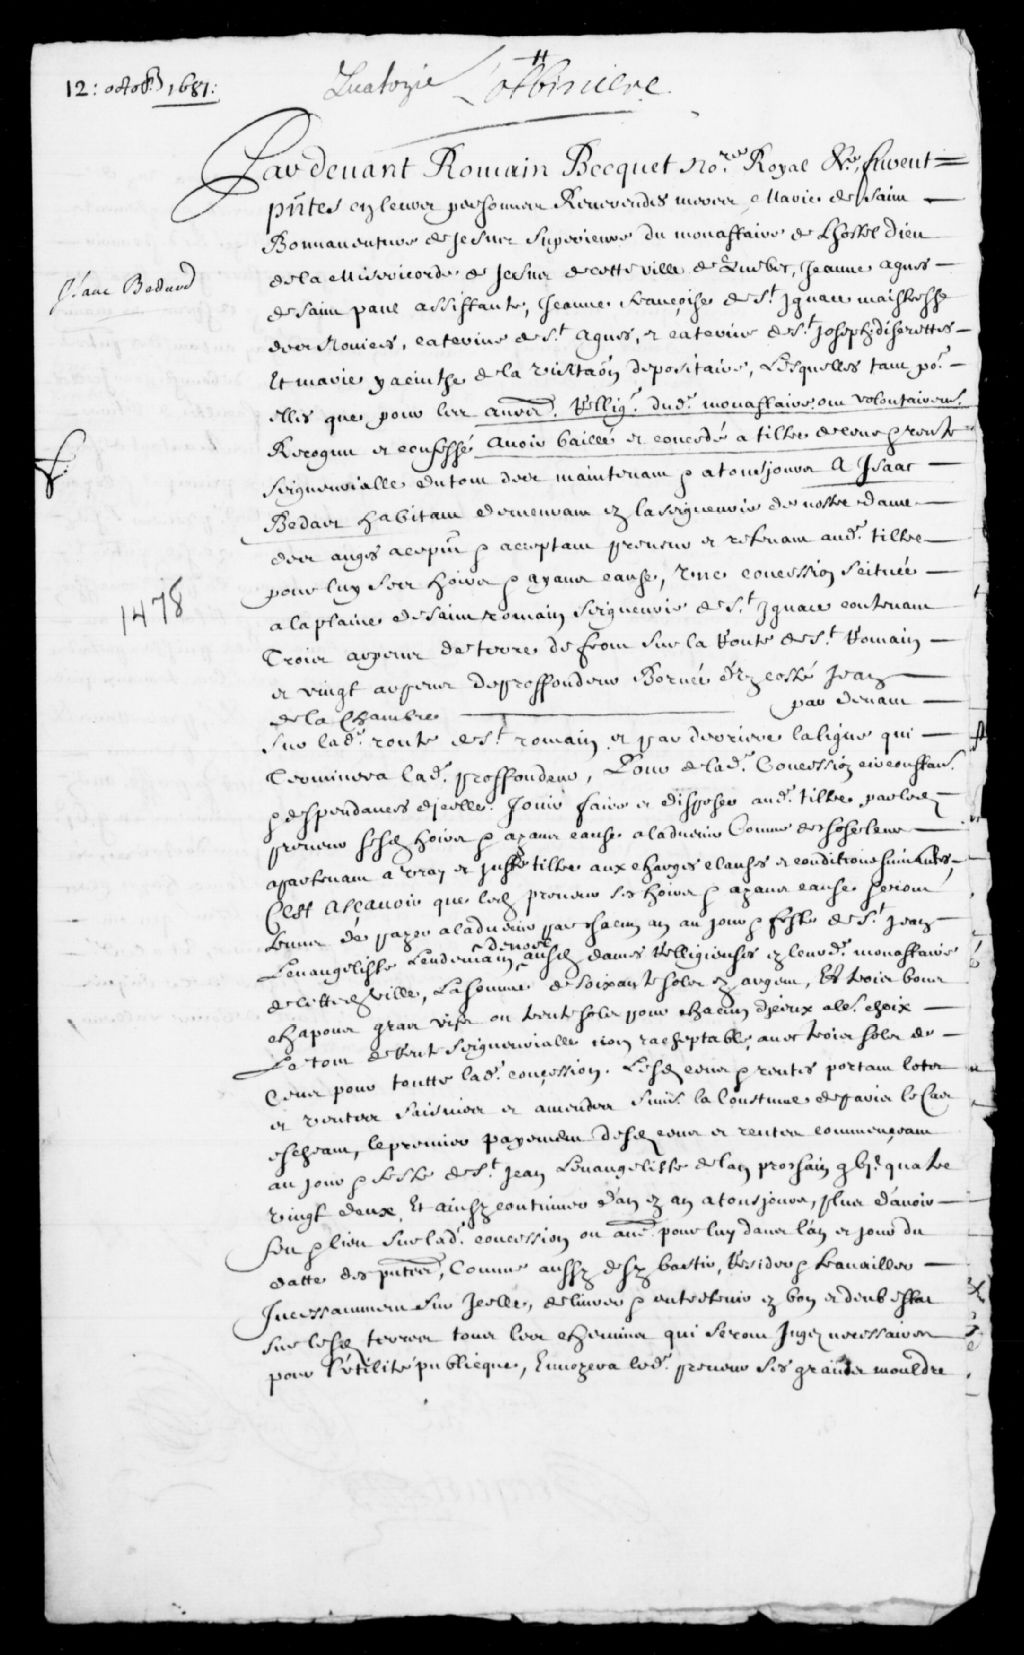 12: octob. 1681:
Lotbiniere
Par devant Romain Becquet No.re Royal &c. furent
pntes en leurs personnes Reverendes meres Marie de Saint
Bonnaventure de Jesus Superieure du monastaire de Lhostel dieu
de la Misericorde de Jesus de cette ville de Quebec, Jeanne agnes
de Saint paul assistante, Jeanne francoise de St. Ignace maistresse
des Novices, caterine de St. Agnes, et caterine de St. Joseph discrettes
Et marie yacinthe de la visitaon depositaire, Lesquelles tant po.
elles que pour les autres Rellig. dud. monastaire ont volontairem.
Isaac Bedard
Recognu et confessé avoir baillé et concedé a tiltre de cens & rente
Seigneurialle du tout des maintenant & a tousjours A Isaac
Bedart habitant demeurant en la seigneurie de nostre dame
des anges a ce pnt & acceptant preneur et retenant aud. tiltre
pour luy Ses hoirs & ayans cause, Une concession scituée
1478
a la plaine de Saint romain Seigneurie de St. Ignace contenant
Trois arpens de terre de front sur la Route de St. Romain
et vingt arpens de proffondeur Bornée d'un costé Jean
de la Chambre par devant
sur lad. route de St. romain et par derriere la ligne qui
Terminera lad. proffondeur, Pour de lad. Concession circonstan.
& despendances d'jcelle Jouir faire et disposer aud. tiltre par led.
preneur sesd. hoirs & ayans cause a ladvenir Comme de chose leur
apartenant a vray et juste tiltre aux charges clauses et conditions suivantes,
C'est Ascavoir que led. preneur ses hoirs & ayans cause seront
tenus de payer a ladvenir par chacun an au jour & feste de St. Jean
Levangeliste Lendemain de noel ausd. dames Relligieuses en leurd. monastaire
de cetted. ville, La somme de soixante sols en argent, Et trois bons
chapons gras vifs ou trente sols pour chacun d'jceux a leur choix
Le tout de rente seigneurialle non racheptable, avec trois sols de
Cens pour toutte lad. concession. Lesd. cens & rentes portant lotz
et ventes saisines et amendes suiv. la Coustume de paris le Cas
escheant, le premier payement desd. cens et rentes commenceant
au jour & feste de St. Jean Levangeliste de lan prochain gbj.c quatre
vingt deux, Et ainsy continuer d'an en an a tousjours, plus d'avoir
feu & lieu sur lad. concession ou autre pour luy dans l'an et jour du
datte des pntes, Comme aussy d'y bastir, Resider & travailler
Incessamment sur Jcelle, de livrer & entretenir en bon et deub estat
sur lesd. terres tous les chemins qui seront Jugez necessaires
pour l'utilité publicque, Envoyera led. preneur ses grains mouldre